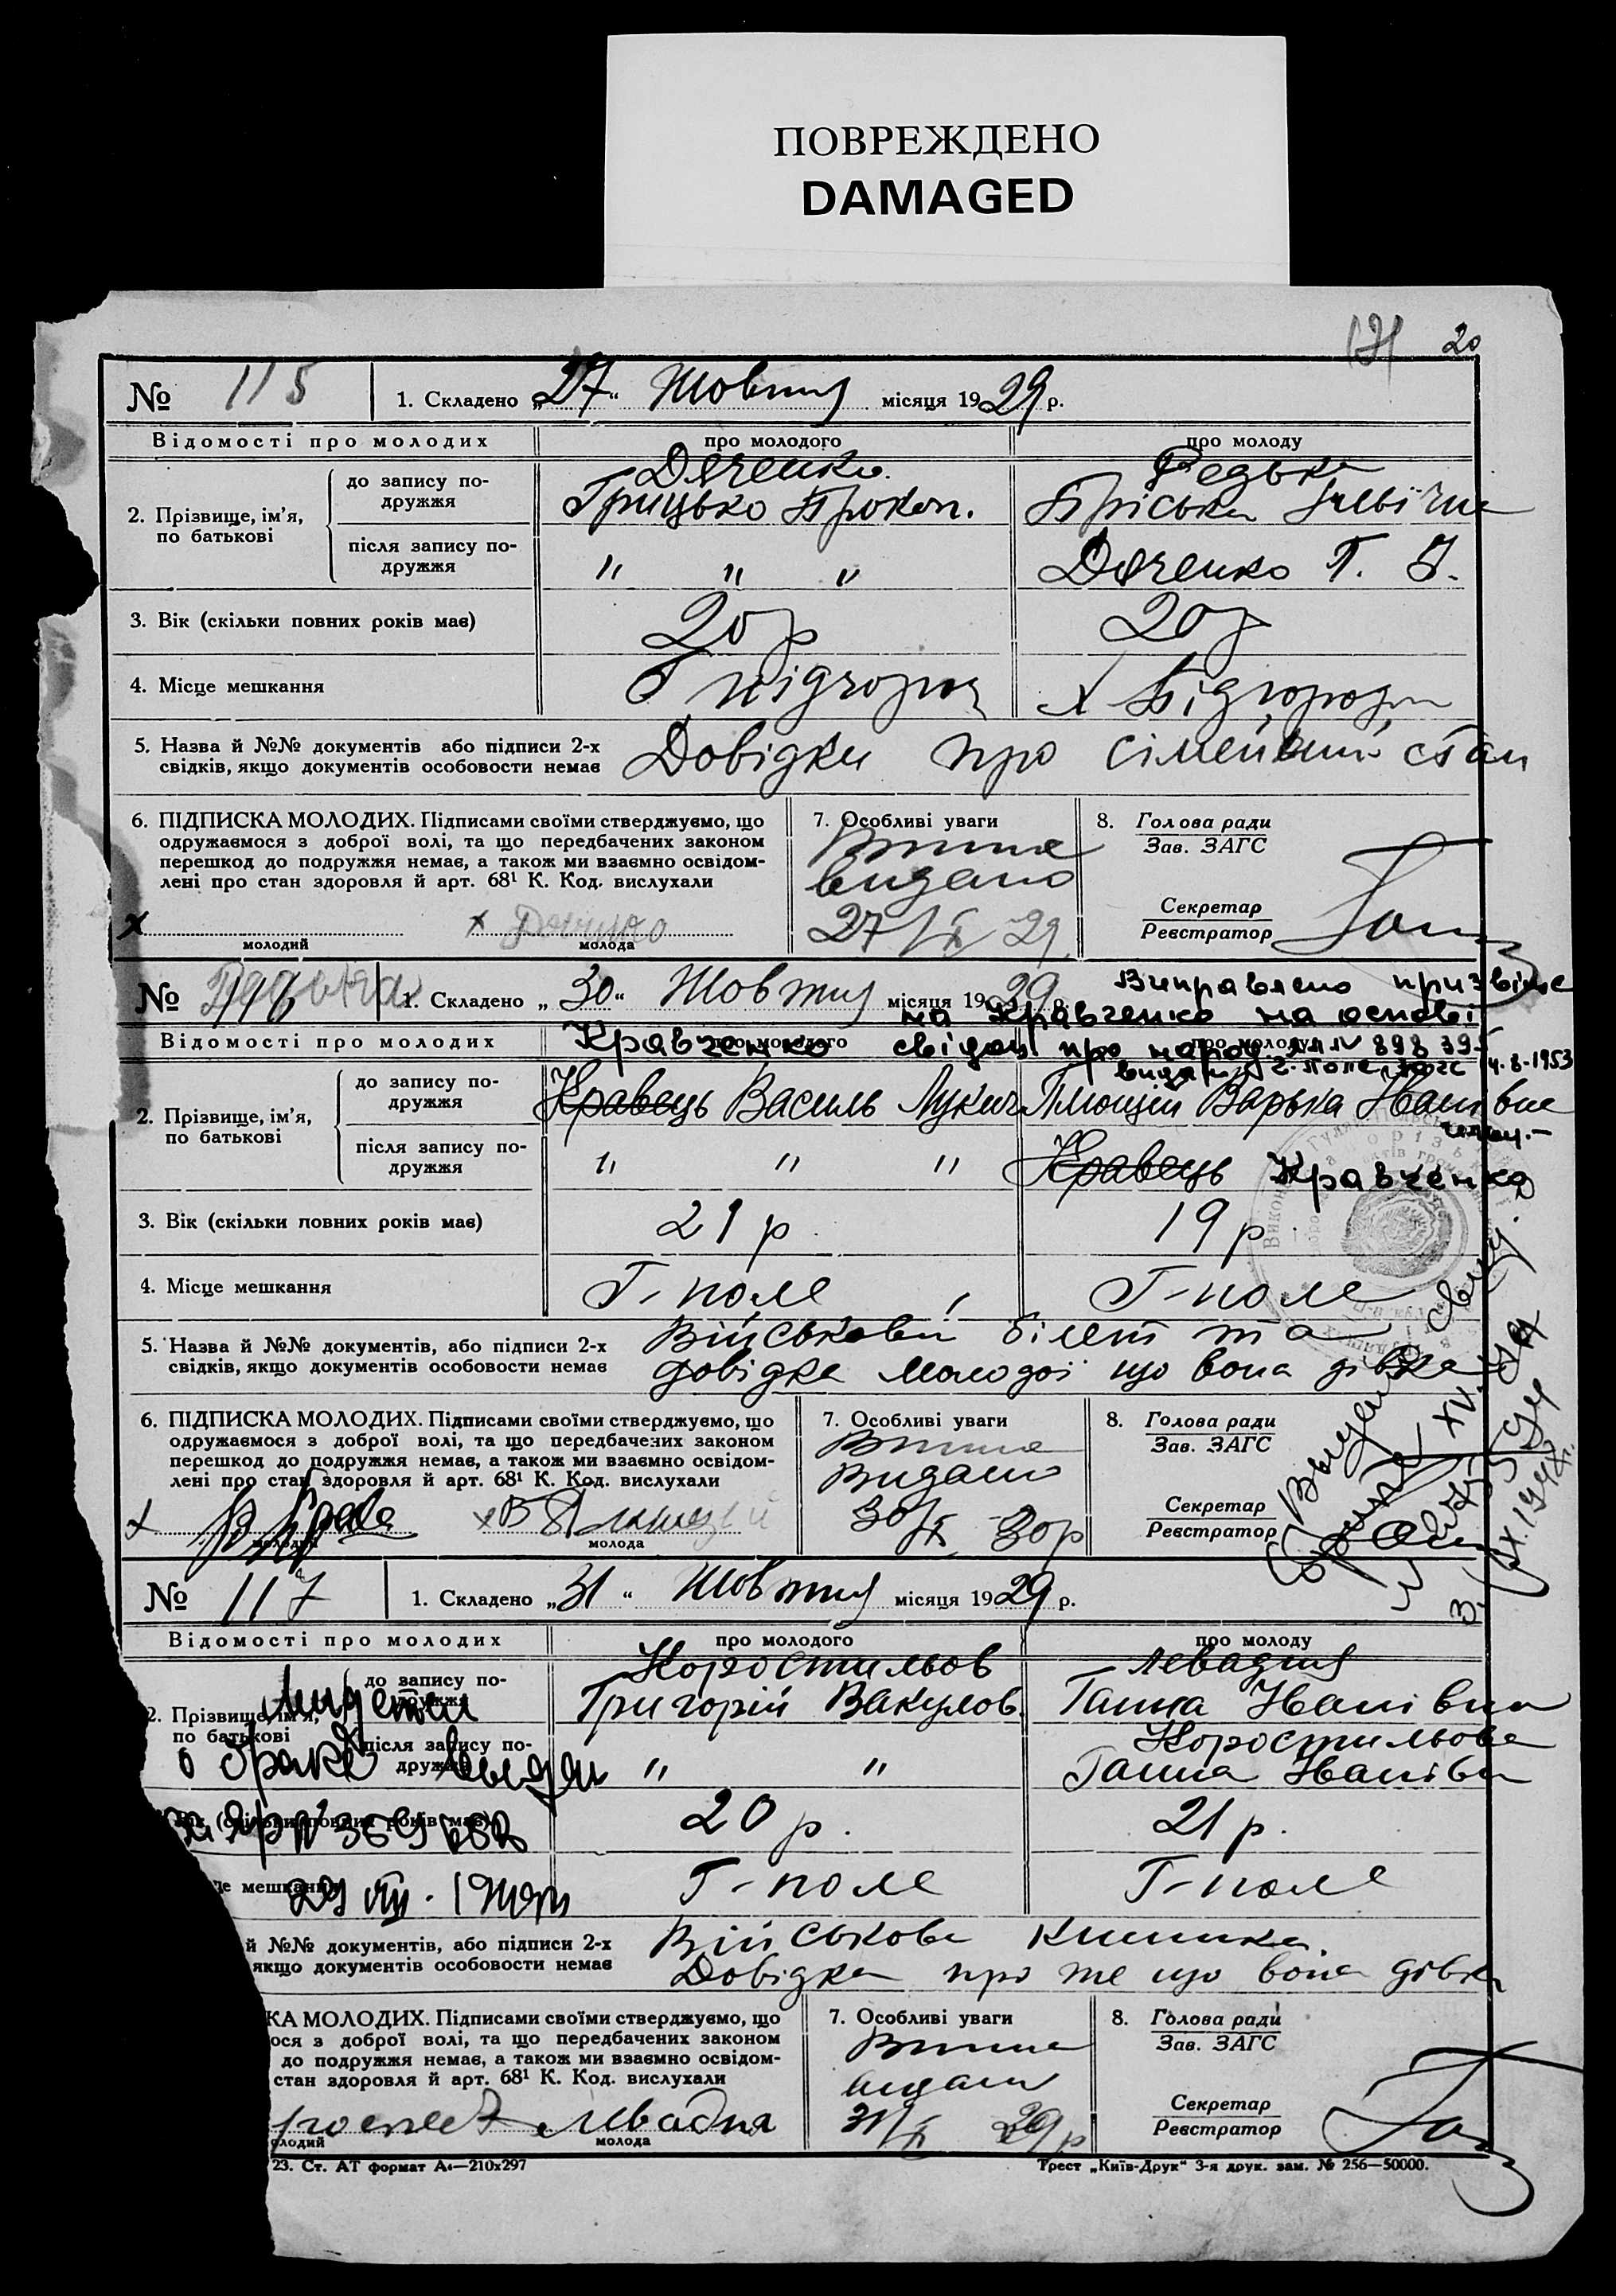 ПОВРЕЖДЕНО
DAMAGED
20
№ 115 1. Складено „27“ Жовтня місяця 1929 р.
Відомості про молодих про молодого про молоду
2. Прізвище, ім’я, по батькові
до запису подружжя
Дяченко Редька
Грицько Прокоп. Пріська
після запису подружжя
" " " Дяченко П. І.
3. Вік (скільки повних років має) 20 р 20 р
4. Місце мешкання Підгородн
5. Назва й №№ документів або підписи 2-х
свідків, якщо документів особовости немає
Довідки про сімейний стан
6. ПІДПИСКА МОЛОДИХ. Підписами своїми стверджуємо, що
одружаємося з доброї волі, та що передбачених законом
перешкод до подружжя немає, а також ми взаємно освідом-
лені про стан здоровля й арт. 68¹ К. Код. вислухали
х х
молодий молода
7. Особливі уваги
Витяг
видано
27/X 29
8. Голова ради
Зав. ЗАГС
Секретар
Реєстратор
№ 116 1. Складено „30“ Жовтня місяця 1929 р.
Виправлено призвіще
на Кравченко на основі
Відомості про молодих про молодого про молоду
Кравченко свідоц про народ № 898 39
4.8-1953
2. Прізвище, ім’я, по батькові
до запису подружжя
Кравець Василь Лукич Плющій Варька Іванівна
після запису подружжя
" " " Кравець Кравченко
3. Вік (скільки повних років має) 21 р 19 р.
4. Місце мешкання Г-поле Г-поле
5. Назва й №№ документів, або підписи 2-х
свідків, якщо документів особовости немає
Військовий білет та
довідка молодої що вона дівка
6. ПІДПИСКА МОЛОДИХ. Підписами своїми стверджуємо, що
одружаємося з доброї волі, та що передбачених законом
перешкод до подружжя немає, а також ми взаємно освідом-
лені про стан здоровля й арт. 68¹ К. Код. вислухали
х х
молодий молода
7. Особливі уваги
Витяг
видано
30/X 30р
8. Голова ради
Зав. ЗАГС
Секретар
Реєстратор
№ 117 1. Складено „31“ Жовтня місяця 1929 р.
Відомості про молодих про молодого про молоду
2. Прізвище, ім’я, по батькові
до запису подружжя
Коростильов Левадня
Григорій Вакулов. Ганна Іванівна
після запису подружжя
" " Коростильова
Ганна Іванівн
о браке выдан
№ 369
Вік (скільки повних років має) 20 р. 21 р.
це мешкання Г-поле Г-поле
й №№ документів, або підписи 2-х
якщо документів особовости немає
Військова книжка.
Довідка про те що вона дівка
КА МОЛОДИХ. Підписами своїми стверджуємо, що
ося з доброї волі, та що передбачених законом
до подружжя немає, а також ми взаємно освідом-
стан здоровля й арт. 68¹ К. Код. вислухали
Левадня
олодий молода
7. Особливі уваги
Витяг
видани
31/X 29р
8. Голова ради
Зав. ЗАГС
Секретар
Реєстратор
23. Ст. АТ формат А₄—210х297
Трест „Київ-Друк“ 3-я друк. зам. № 256—50000.